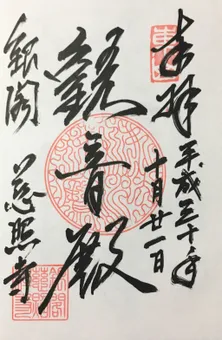 奉拝
平成三十年
十月廿一日
観音殿
銀閣
慈照寺